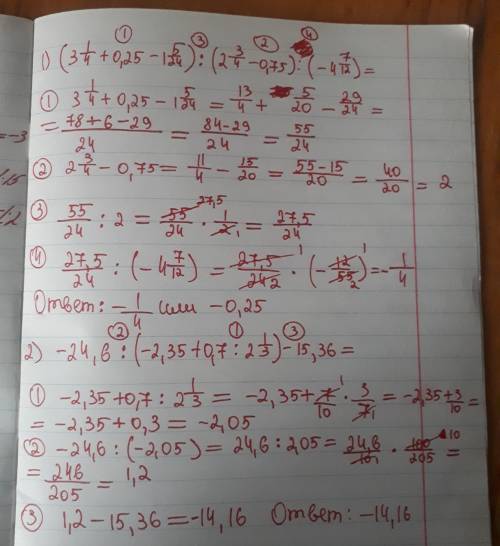 = -3
1) (3 1/4 + 0,25 - 1 5/24) : (2 3/4 - 0,75) : (-4 7/12) =
① 3 1/4 + 0,25 - 1 5/24 = 13/4 + 5/20 - 29/24 =
= (78 + 6 - 29)/24 = (84 - 29)/24 = 55/24
② 2 3/4 - 0,75 = 11/4 - 15/20 = (55 - 15)/20 = 40/20 = 2
③ 55/24 : 2 = 55/24 · 1/2 = 27,5/24
④ 27,5/24 : (-4 7/12) = 27,5/24 · (-12/55) = -1/4
Ответ: -1/4 или -0,25
2) -24,6 : (-2,35 + 0,7 : 2 1/3) - 15,36 =
① -2,35 + 0,7 : 2 1/3 = -2,35 + 7/10 · 3/7 = -2,35 + 3/10 =
= -2,35 + 0,3 = -2,05
② -24,6 : (-2,05) = 24,6 : 2,05 = 246/10 · 100/205 =
= 246/205 = 1,2
③ 1,2 - 15,36 = -14,16 Ответ: -14,16